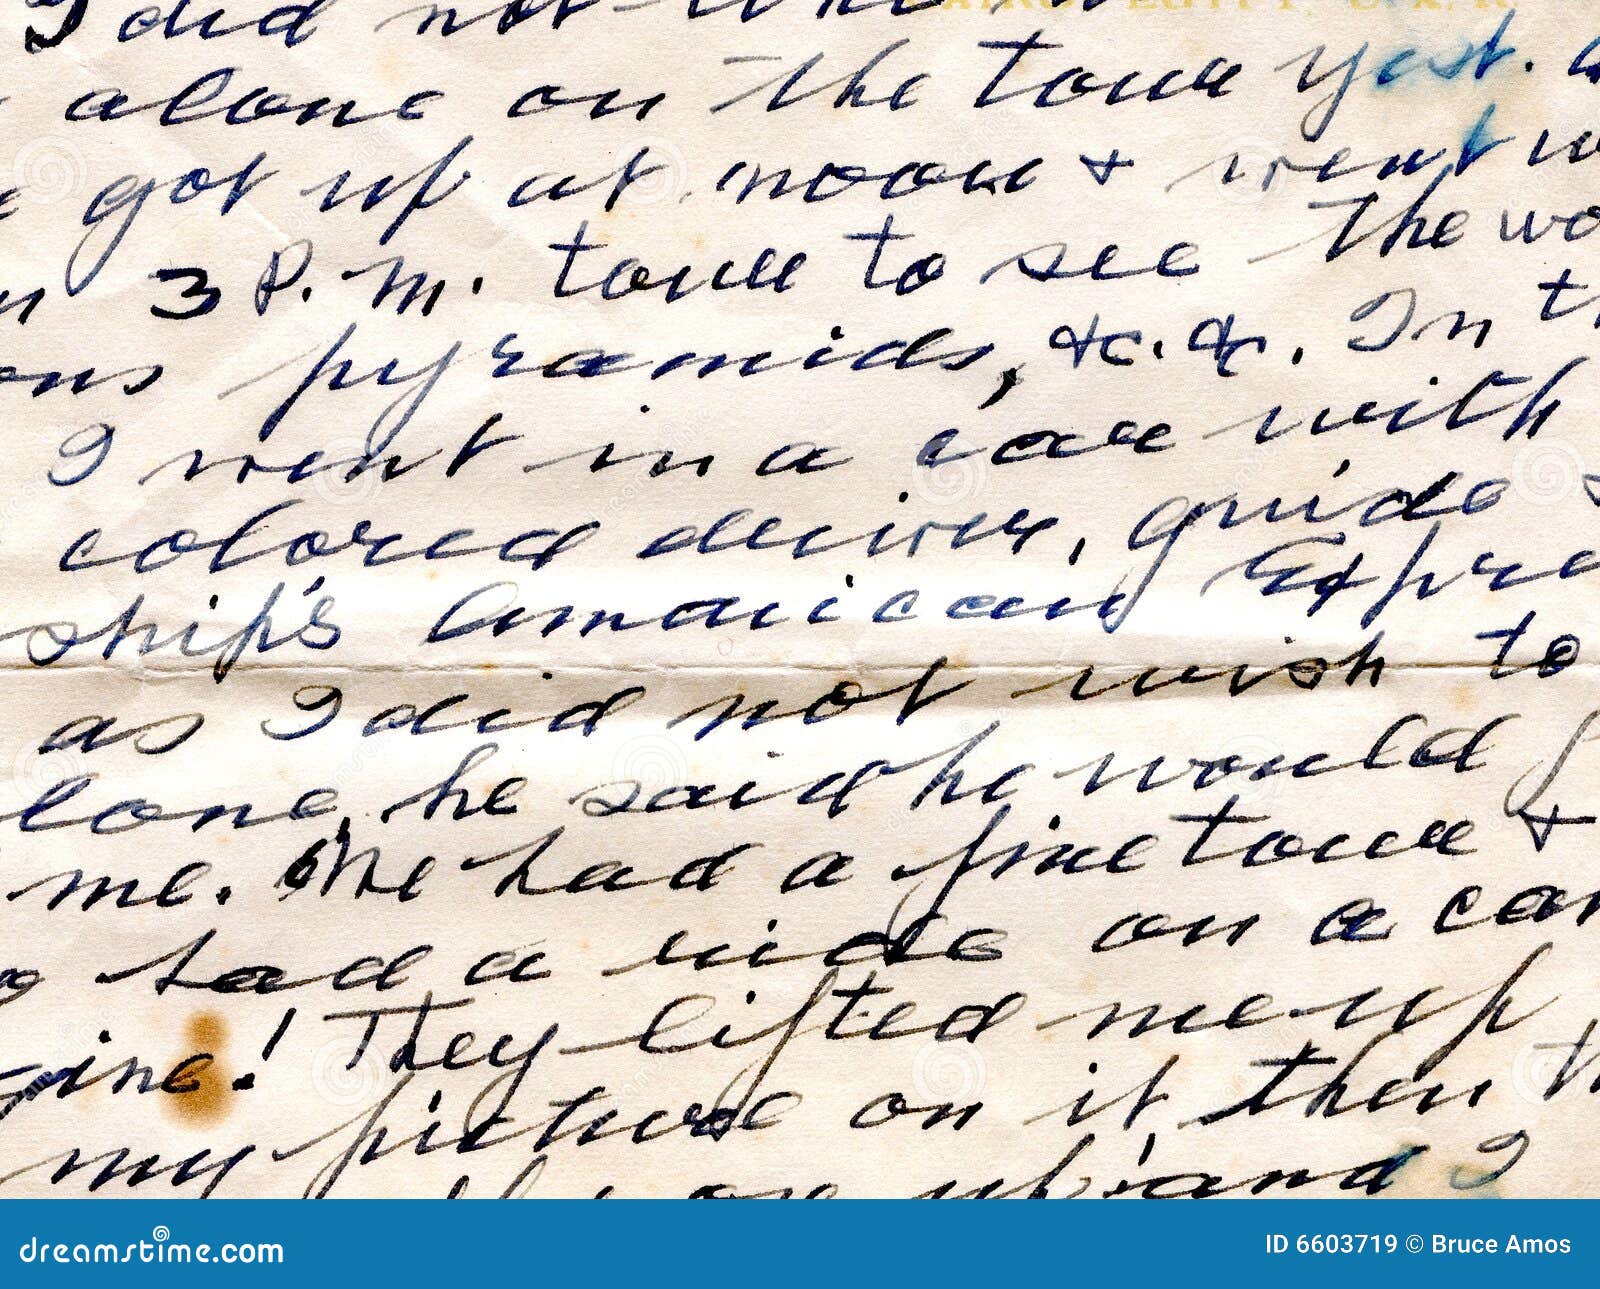 I did not
alone on the tour yest.
got up at noon & went
3 P.M. tour to see the wo
ons pyramids, &c. &c. In th
I went in a car with
colored driver, guide &
ship's American Expre
as I did not wish to
lone, he said he would
me. We had a fine tour &
had a ride on a cam
gine! They lifted me up,
my picture on it then th
up and I
dreamstime.com
ID 6603719 © Bruce Amos